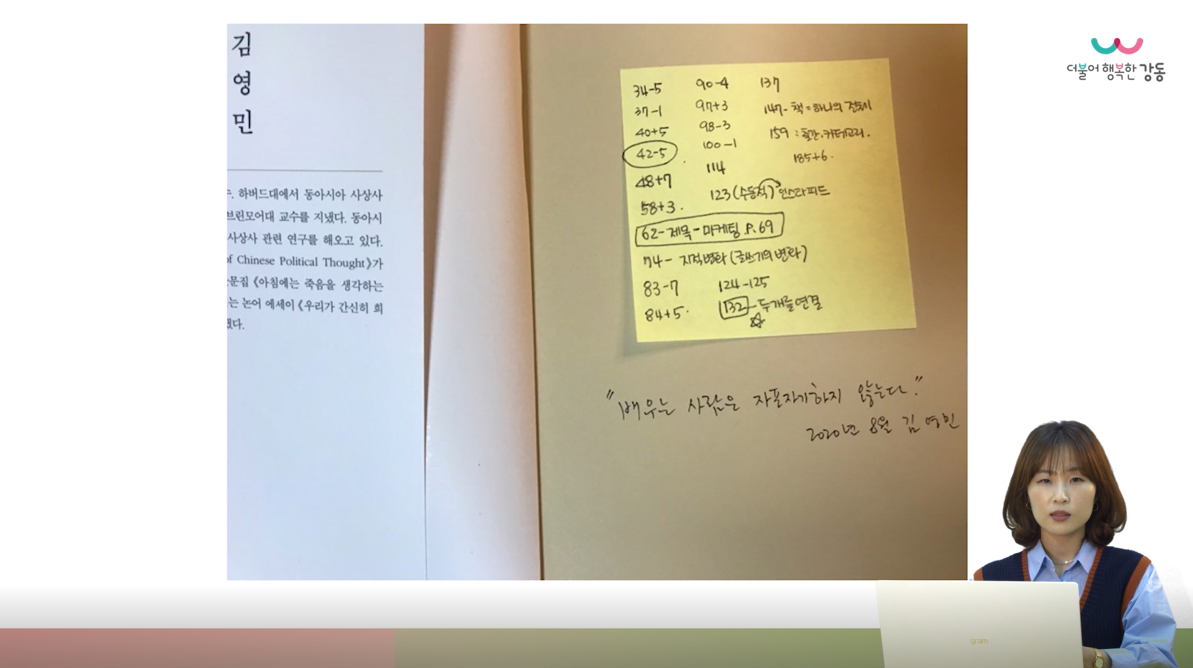 김
영
민
수. 하버드대에서 동아시아 사상사
브린모어대 교수를 지냈다. 동아시
사상사 관련 연구를 해오고 있다.
of Chinese Political Thought》가
산문집 《아침에는 죽음을 생각하는
는 논어 에세이 《우리가 간신히 희
했다.
34-5
37-1
40+5
42-5
48+7
58+3.
62-제목-마케팅 P.69
74- 지적변화 (글쓰기의 변화)
83-7
84+5.
90-4
97+3
98-3
100-1
114
123 (수동적) 인스타피드
124-125
132-두개를 연결
137
147- 책=하나의 전토이
159 : 카테고리.
185+6.
"배우는 사람은 자포자기하지 않는다."
2020년 8월 김영민
더불어 행복한 강동
gram